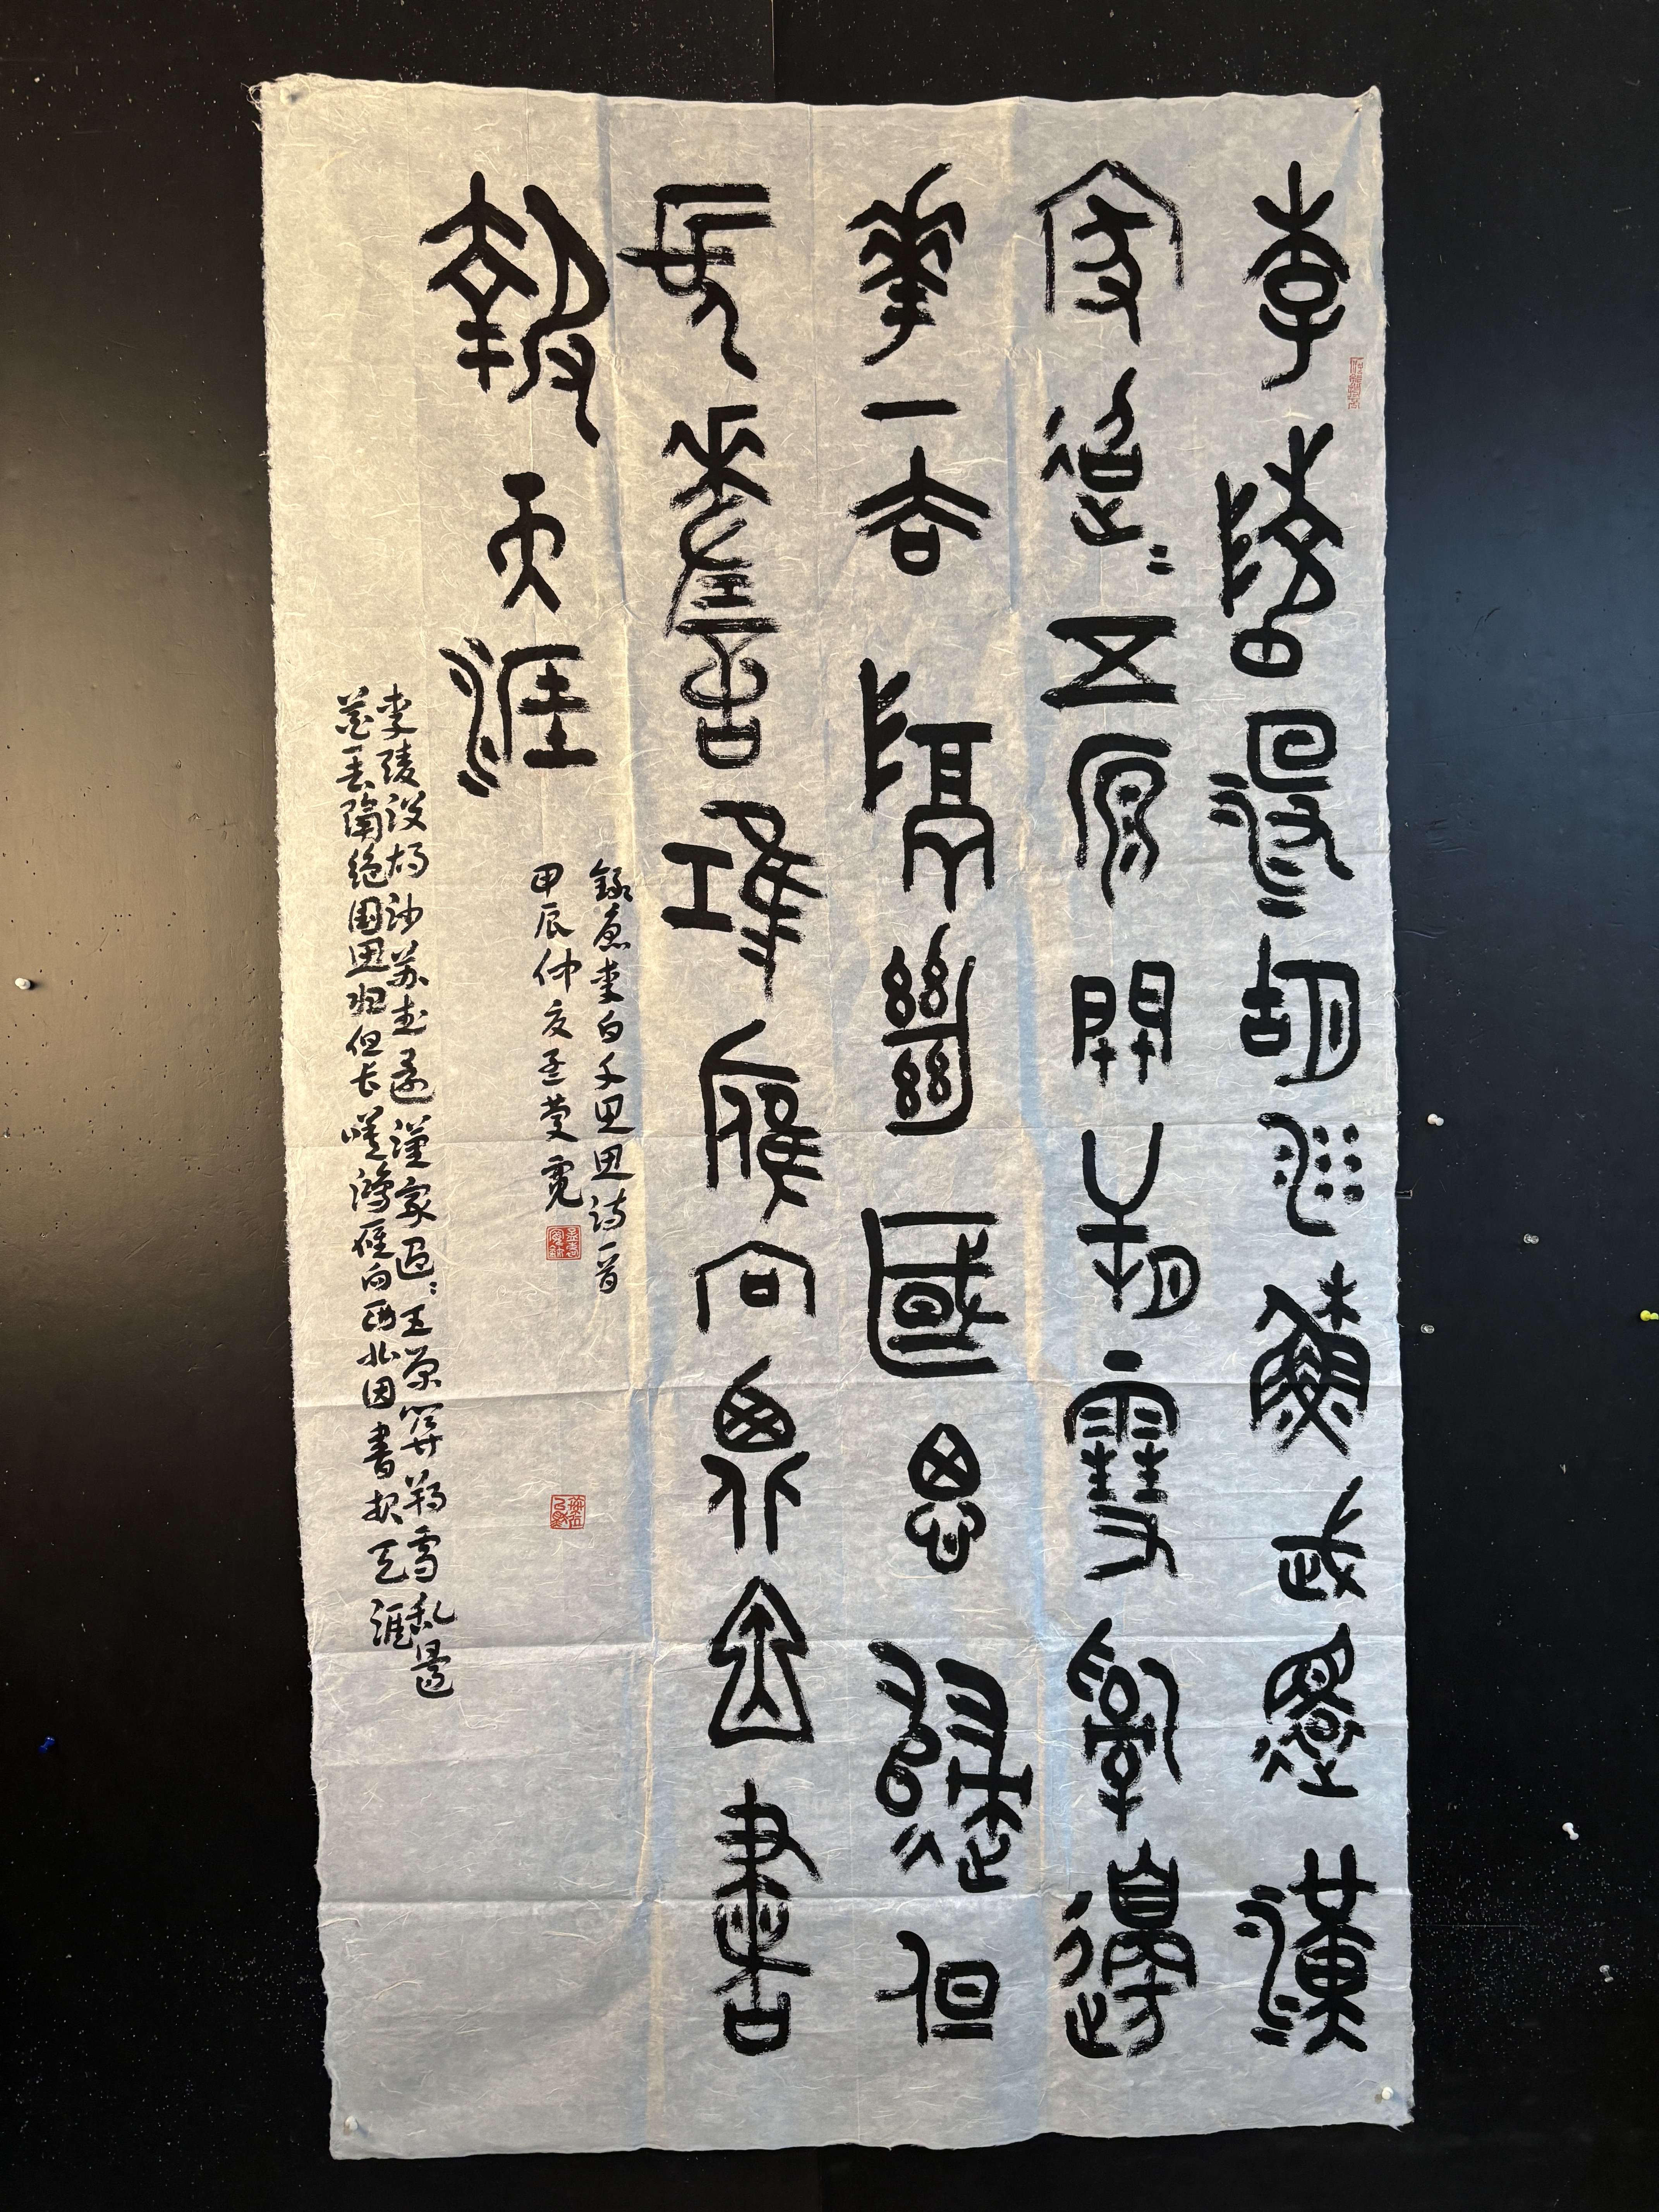 李陵沒胡沙蘇武還漢
家迢迢五原關朔雪亂邊
華一去隔絕國思歸但
長嗟鴻雁向西北因書
報天涯
錄李白千里思诗一首
甲辰仲夏
李陵没胡沙苏武還漢家迢迢五原關朔雪乱邊
花一去隔绝國思归但长嗟鴻雁向西北因書报天涯